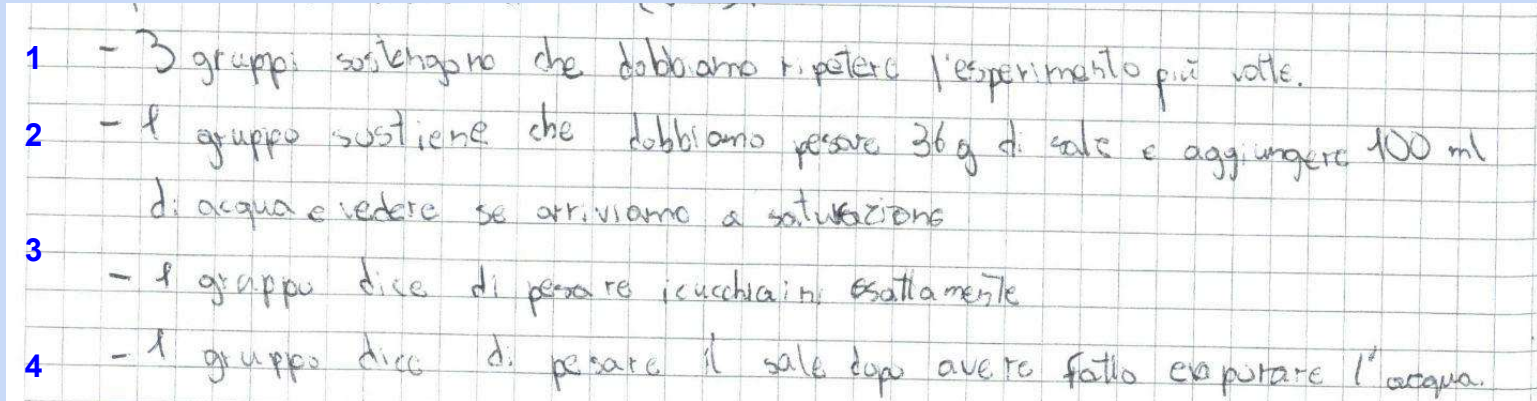 1 - 3 gruppi sostengono che dobbiamo ripetere l'esperimento più volte.
2 - 1 gruppo sostiene che dobbiamo pesare 36 g di sale e aggiungere 100 ml
di acqua e vedere se arriviamo a saturazione
3
- 1 gruppo dice di pesare i cucchiaini esattamente
4 - 1 gruppo dice di pesare il sale dopo avere fatto evaporare l'acqua.